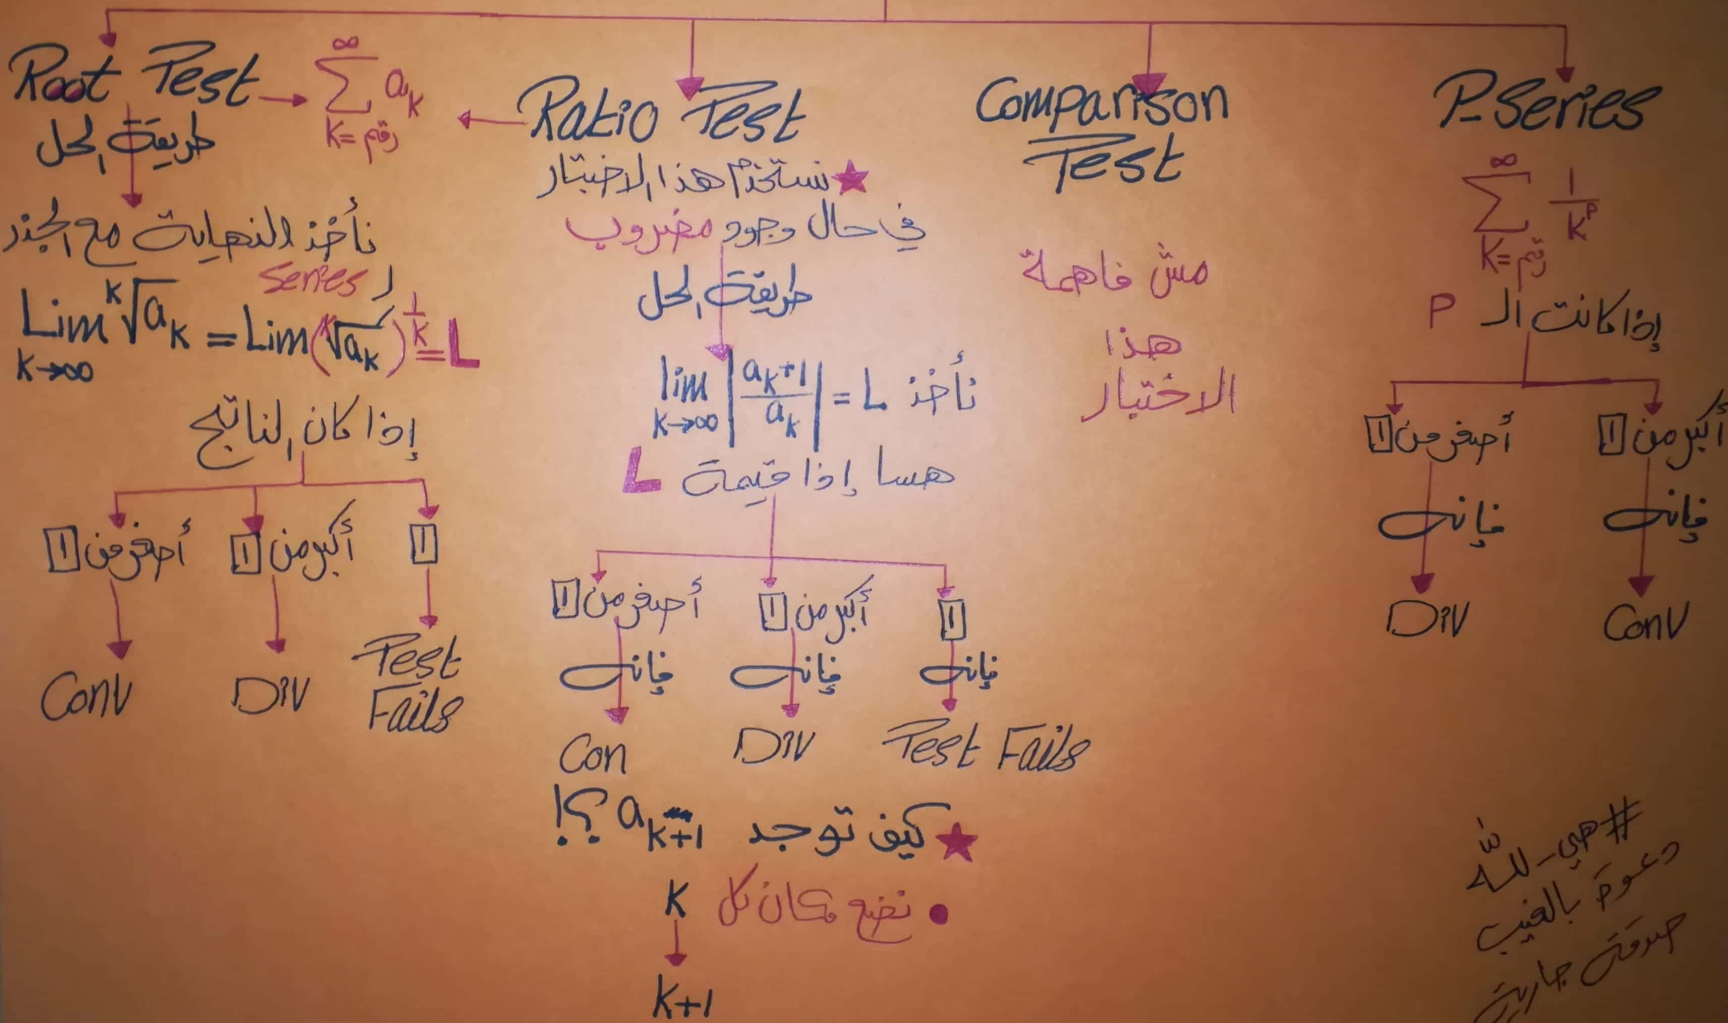 Root Test
∞ Σ K=رقم a_k
طريقة الحل
نأخذ النهاية مع الجذر
لـ Series
Lim K→∞ ᵏ√a_k = Lim (ᵏ√a_k)^(1/k) = L
إذا كان الناتج
أصغر من 1
أكبر من 1
1
Conv
Div
Test
Fails
Ratio Test
★ نستخدم هذا الاختبار
في حال وجود مضروب
طريقة الحل
نأخذ lim K→∞ |a_k+1 / a_k| = L
هسا إذا قيمة L
أصغر من 1
أكبر من 1
1
فإنه
فإنه
فإنه
Con
Div
Test Fails
★ كيف توجد a_k+1 ؟!
• نضع مكان كل K
K+1
Comparison
Test
مش فاهمة
هذا
الاختبار
P-Series
∞ Σ K=رقم 1/k^P
إذا كانت الـ P
أصغر من 1
أكبر من 1
فإنه
فإنه
Div
Conv
دعوة بالغيب
صدقة جارية